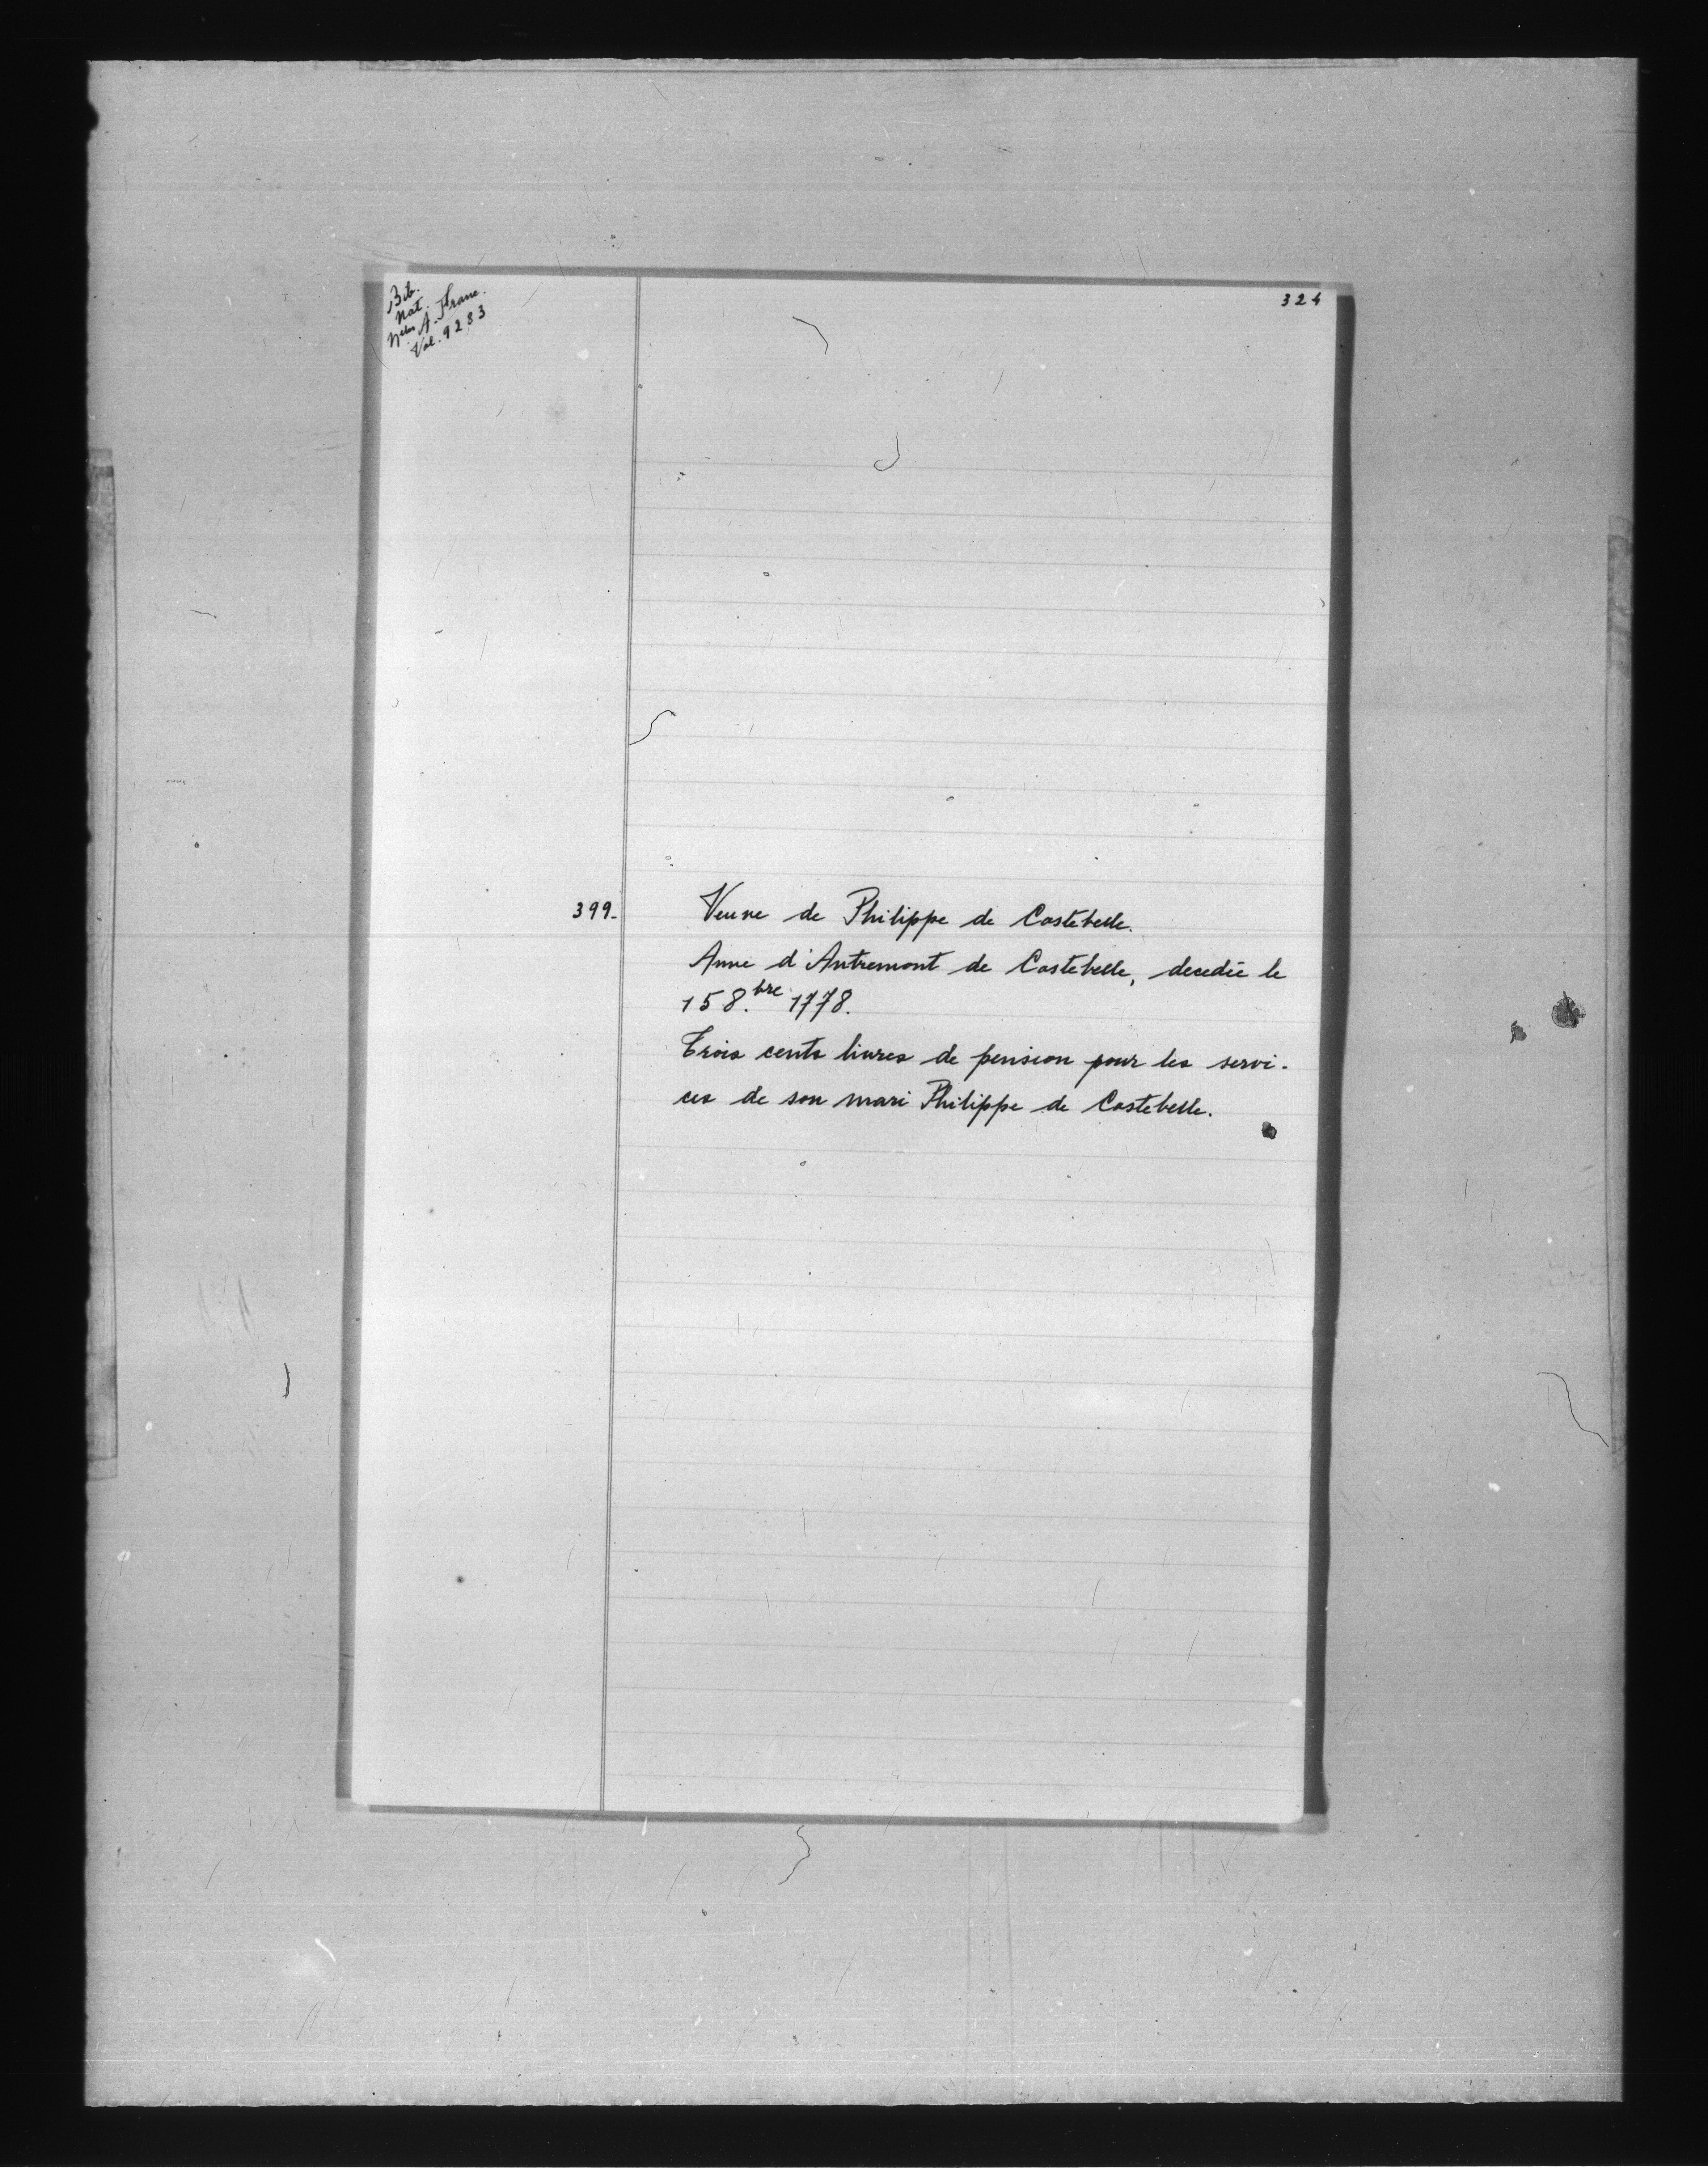 Bib.
Nat.
Nelles A. Franc.
Vol. 9283
324
399.
Veuve de Philippe de Costebelle.
Anne d'Antremont de Costebelle, decedée le
15 8.bre 1778.
Trois cents livres de pension pour les servi-
ces de son mari Philippe de Costebelle.